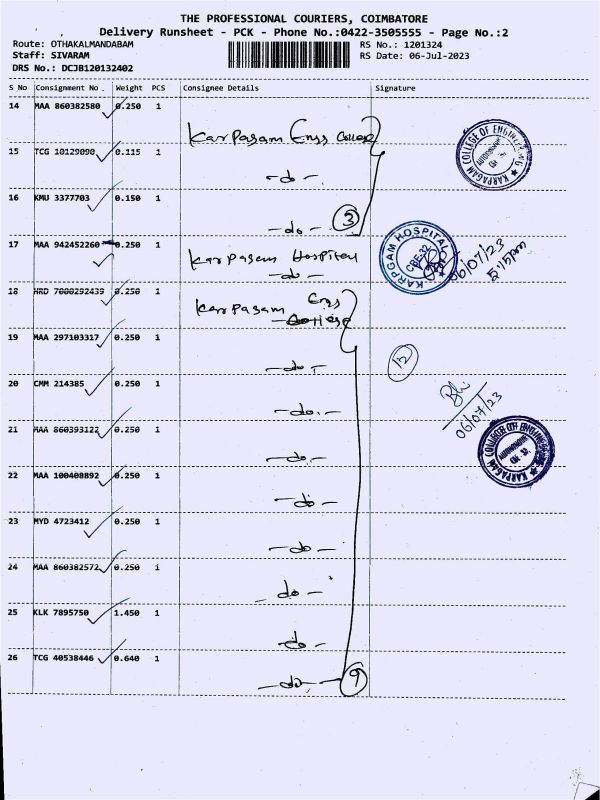 THE PROFESSIONAL COURIERS, COIMBATORE
Delivery Runsheet - PCK - Phone No.:0422-3505555 - Page No.:2
Route: OTHAKALMANDABAM RS No.: 1201324
Staff: SIVARAM RS Date: 06-Jul-2023
DRS No.: DCJB120132402
S No Consignment No. Weight PCS Consignee Details Signature
14 MAA 860382580 0.250 1
Karpagam Engg College
15 TCG 10129090 0.115 1
-do-
16 KMU 3377703 0.150 1
-do- 3
KARPAGAM COLLEGE OF ENGINEERING
AUTONOMOUS
17 MAA 942452260 0.250 1
Karpagam Hospital
-do-
KARPAGAM HOSPITAL
CBE-32
06/07/23
5:15pm
18 HRD 7000292439 0.250 1
Karpagam Engg
College
19 MAA 297103317 0.250 1
-do- 12
20 CMM 214385 0.250 1
-do-
06/07/23
21 MAA 860393122 0.250 1
-do-
KARPAGAM COLLEGE OF ENGINEERING
AUTONOMOUS
22 MAA 100408892 0.250 1
-do-
23 MYD 4723412 0.250 1
-do-
24 MAA 860382572 0.250 1
-do-
25 KLK 7895750 1.450 1
-do-
26 TCG 40538446 0.640 1
-do- 9